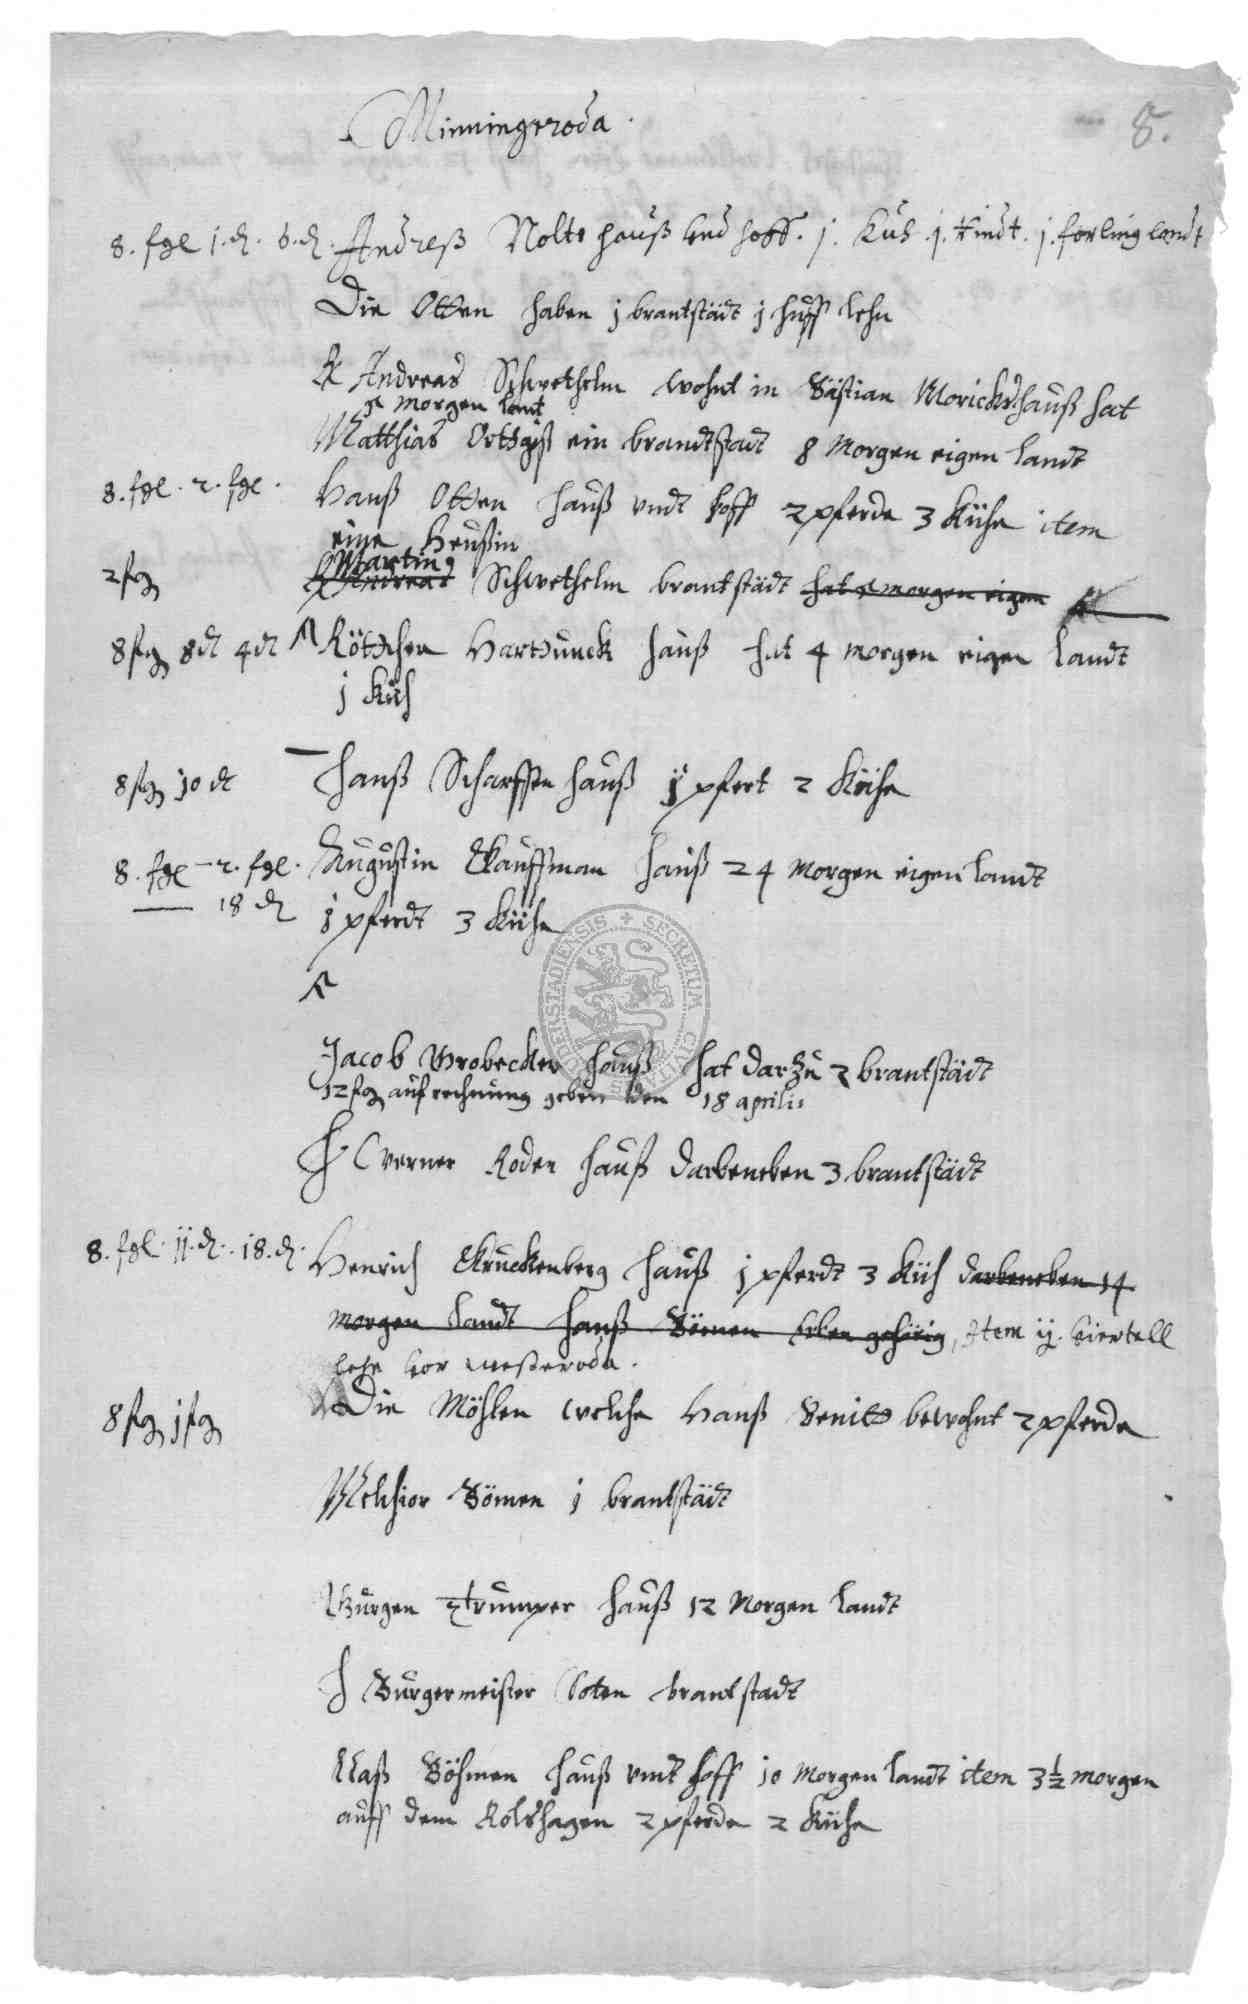 Minningeroda.
8.
8. fgl j. d. 6. d. Andreß Nolte hauß und hoff. j. Kuh. j. Rindt. j. forling landt
Die Otten haben j brantstädt j huff lehn
Andreas Schwethelm wohnt in Bästian Morickes hauß hat
morgen lant
Matthias ein brandtstadt 8 Morgen eigen landt
8. fgl. 2. fgl. Hanß Otten hauß undt hoff 2 pferde 3 Kühe item
eine Heußin
Martin
2 fg Andreas Schwethelm brantstädt hat morgen eigen
8 fg 8 d 4 d Röttcher Hartdunck hauß hat 4 morgen eigen landt
j Kuh
8 fg 10 d Hanß Scharffen hauß j pfert 2 Kühe
8. fgl. 2. fgl. Augustin Kauffman hauß 24 Morgen eigen landt
18 d j pferdt 3 Kühe
Jacob Grobecker hauß hat darzu 2 brantstädt
12 fg auf rechnung geben den 18 aprilis
Werner Roden hauß darbeneben 3 brantstädt
8. fgl. jj. d. 18. d. Henrich Kruckenberg hauß j pferdt 3 Küh darbeneben 14
morgen landt hanß Bömen erben gehörig, Item ij. viertell
lehn vor westeroda.
8 fg j fg Die Möhlen welche Hanß bewohnt 2 pferde
Melchior Bömen j brantstädt
Gurgen Trumper hauß 12 Morgen landt
Burgermeister Boten brantstadt
Claß Böhmen hauß undt hoff 10 Morgen landt item 3½ morgen
auff dem Rolshagen 2 pferde 2 Kühe